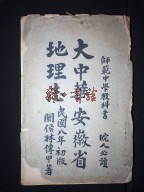 師範中學教科書　皖人必讀
大中華安徽省
地理志
民國八年初版
閩侯林傳甲著